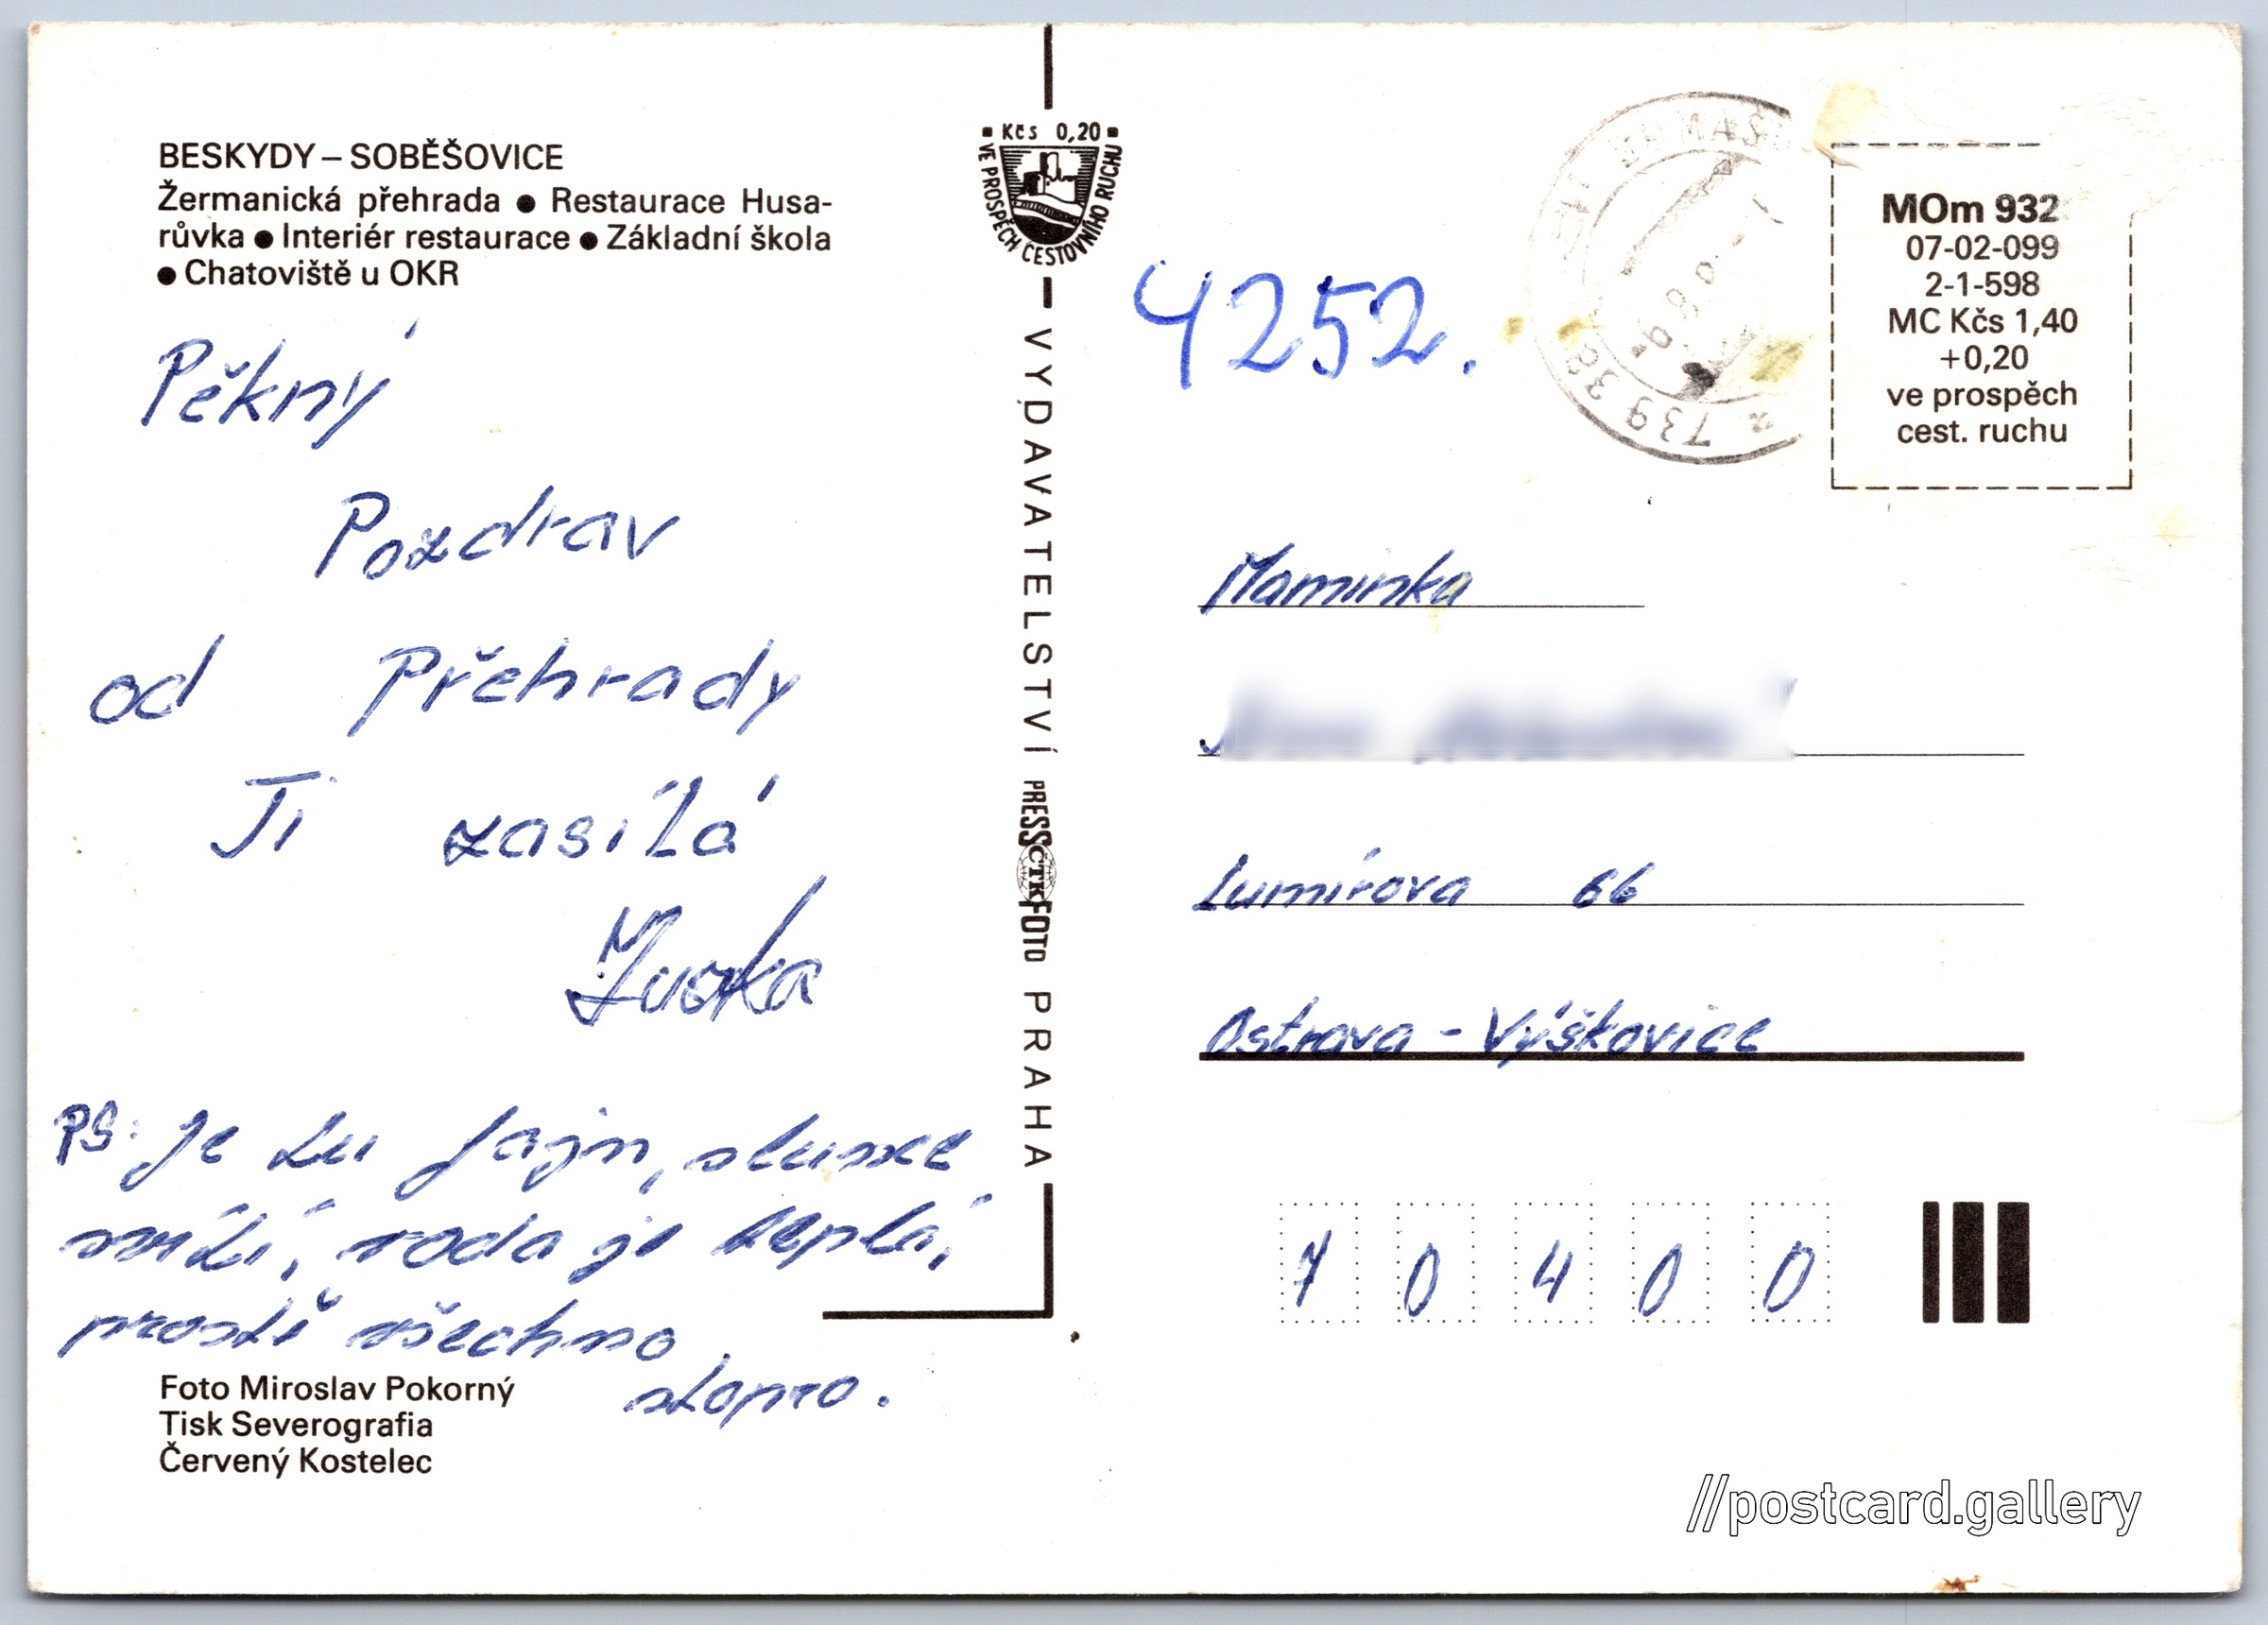 BESKYDY – SOBĚŠOVICE
Žermanická přehrada ● Restaurace Husa-
růvka ● Interiér restaurace ● Základní škola
● Chatoviště u OKR
Pěkný
Pozdrav
od Přehrady
Ti zasílá
PS: Je tu fajn, slunce
svítí, voda je teplá,
prostě všechno
stopro.
Foto Miroslav Pokorný
Tisk Severografia
Červený Kostelec
Kčs 0,20
VE PROSPĚCH CESTOVNÍHO RUCHU
VYDAVATELSTVÍ PRESSFOTO PRAHA
ČTK
4252.
739 38
MOm 932
07-02-099
2-1-598
MC Kčs 1,40
+0,20
ve prospěch
cest. ruchu
Maminka
Lumírova 66
Ostrava - Výškovice
70400
//postcard.gallery